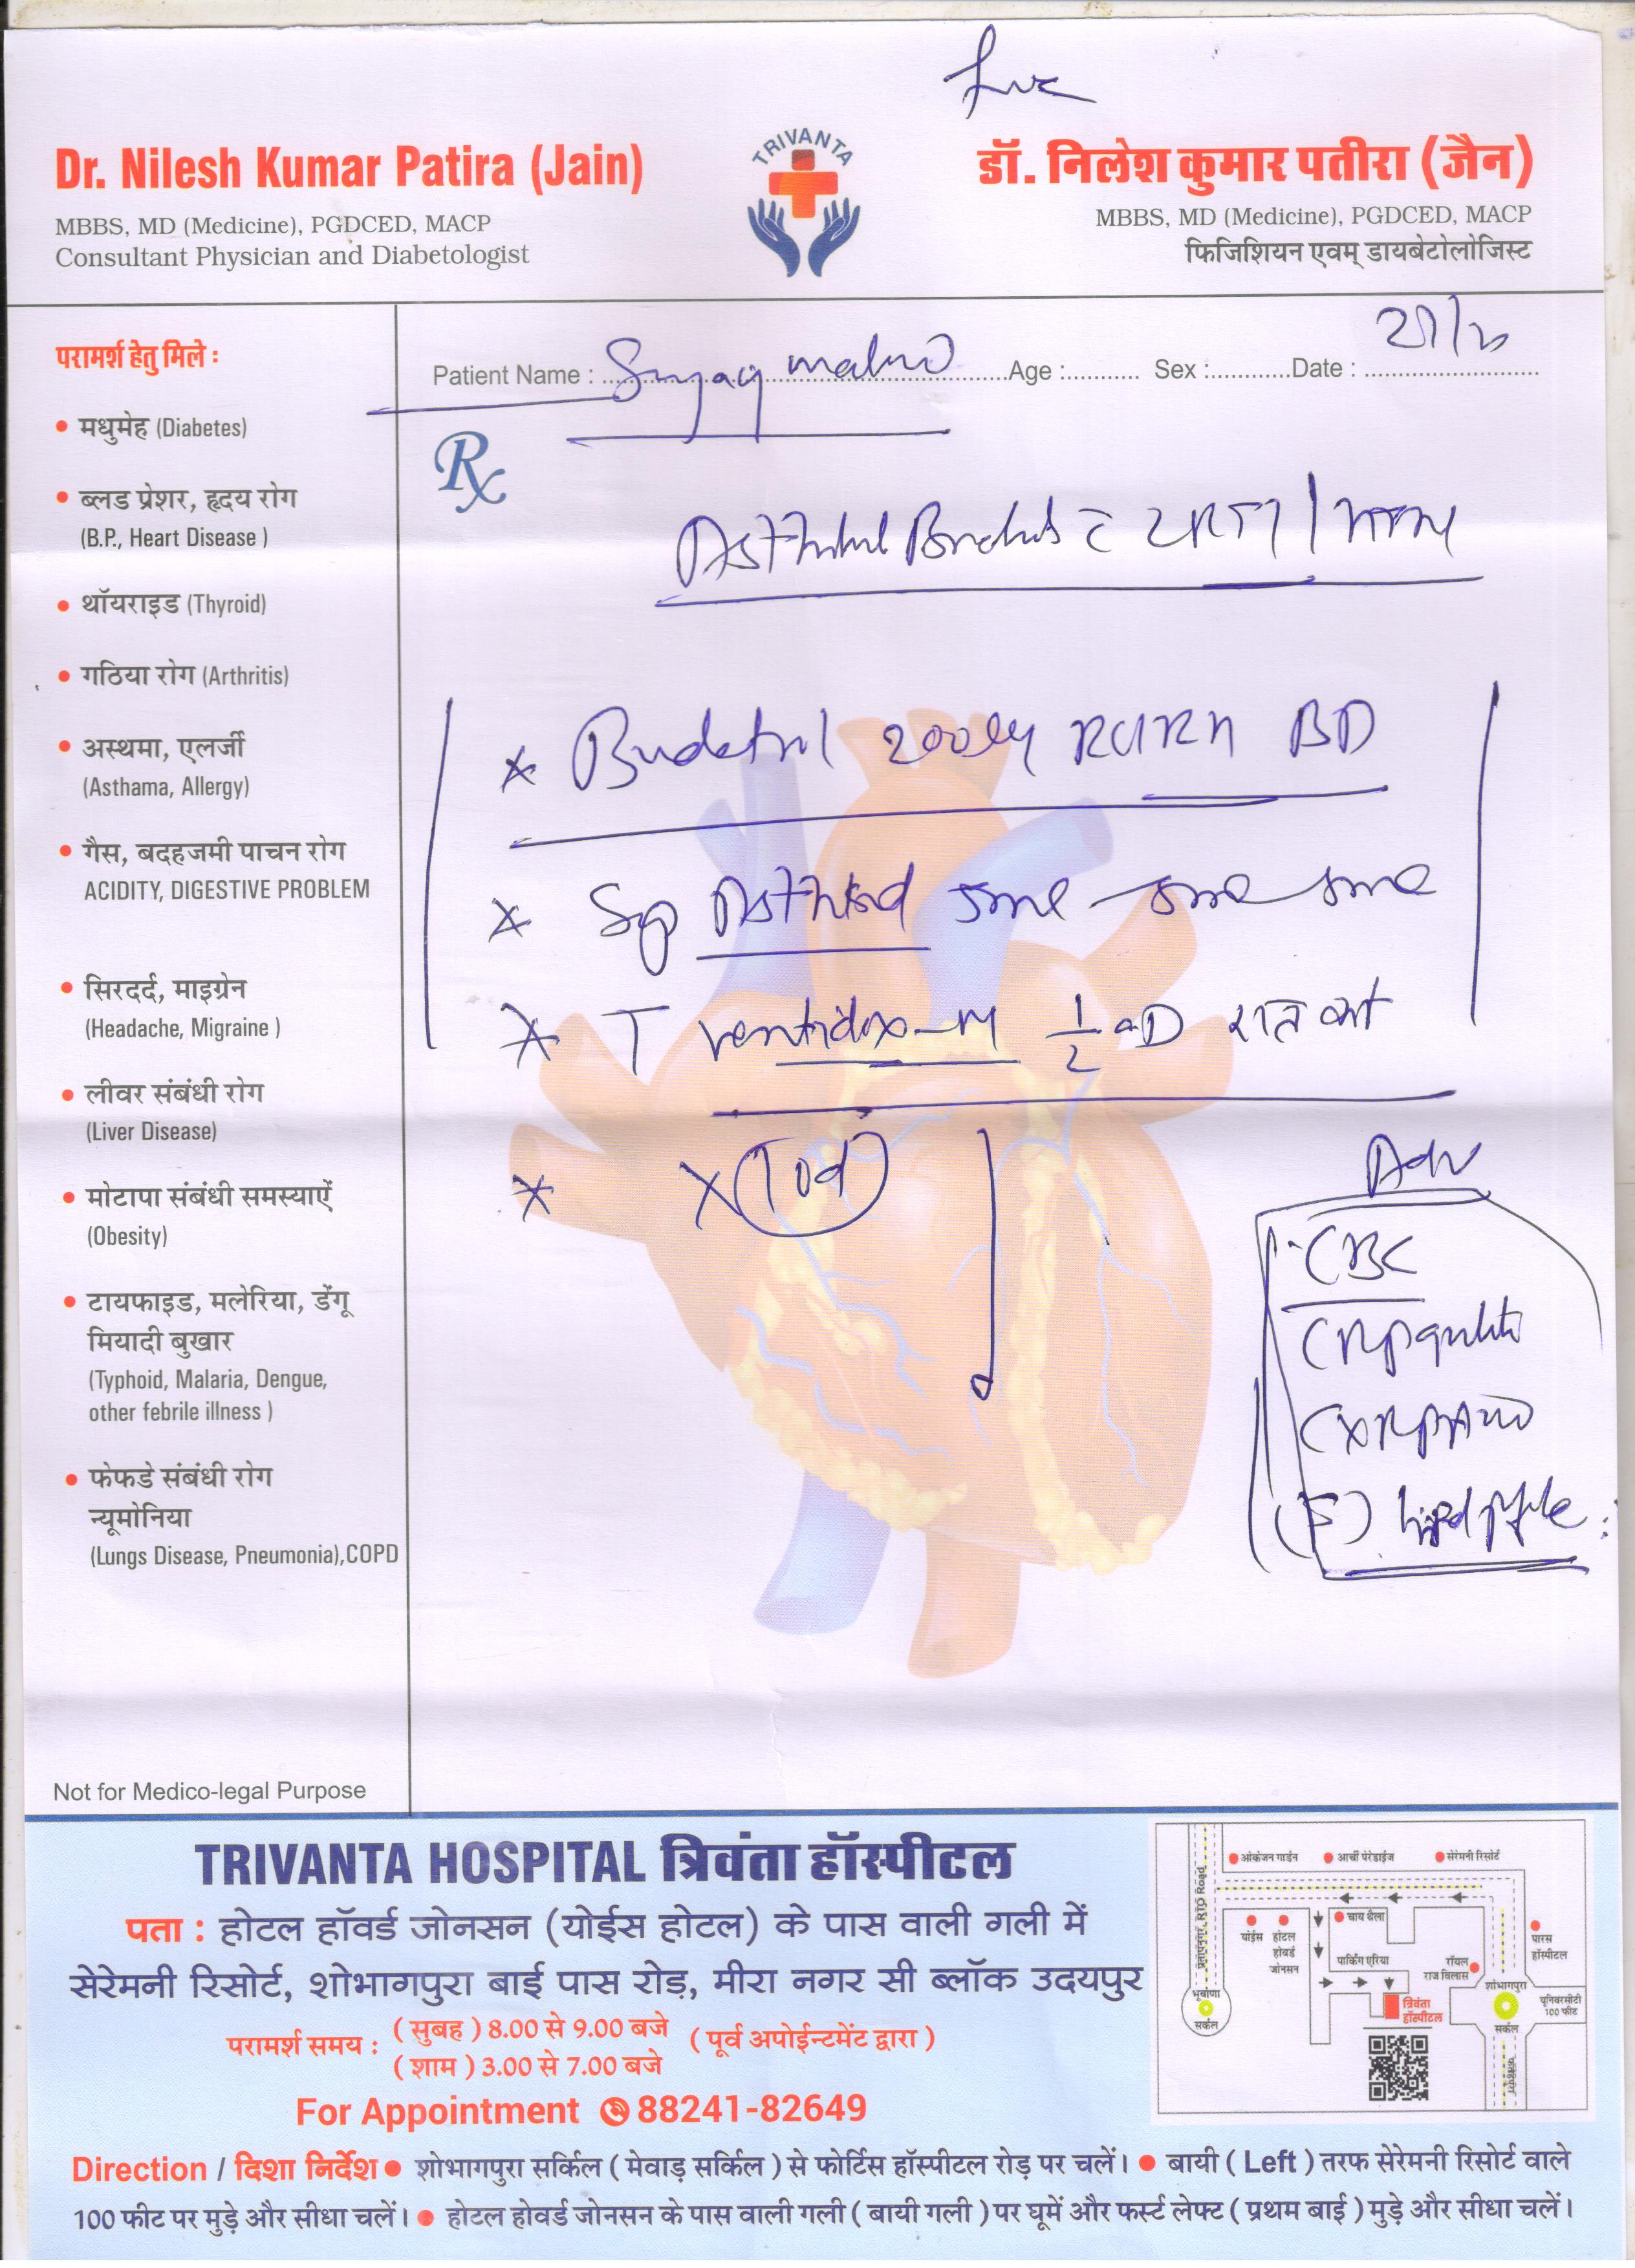 TRIVANTA
Dr. Nilesh Kumar Patira (Jain)
MBBS, MD (Medicine), PGDCED, MACP
Consultant Physician and Diabetologist
डॉ. निलेश कुमार पतीरा (जैन)
MBBS, MD (Medicine), PGDCED, MACP
फिजिशियन एवम् डायबेटोलोजिस्ट
Patient Name : Age : Sex : Date :
Rx
200 BD
Syp 5ml 5ml 5ml
T ventidox-M 1/2 OD रात को
X (10d)
Adv
CBC
CRP
(F) lipid profile
परामर्श हेतु मिले :
• मधुमेह (Diabetes)
• ब्लड प्रेशर, हृदय रोग
(B.P., Heart Disease )
• थॉयराइड (Thyroid)
• गठिया रोग (Arthritis)
• अस्थमा, एलर्जी
(Asthama, Allergy)
• गैस, बदहजमी पाचन रोग
ACIDITY, DIGESTIVE PROBLEM
• सिरदर्द, माइग्रेन
(Headache, Migraine )
• लीवर संबंधी रोग
(Liver Disease)
• मोटापा संबंधी समस्याऐं
(Obesity)
• टायफाइड, मलेरिया, डेंगू
मियादी बुखार
(Typhoid, Malaria, Dengue,
other febrile illness )
• फेफडे संबंधी रोग
न्यूमोनिया
(Lungs Disease, Pneumonia),COPD
Not for Medico-legal Purpose
TRIVANTA HOSPITAL त्रिवंता हॉस्पीटल
पता : होटल हॉवर्ड जोनसन (योईस होटल) के पास वाली गली में
सेरेमनी रिसोर्ट, शोभागपुरा बाई पास रोड़, मीरा नगर सी ब्लॉक उदयपुर
परामर्श समय : ( सुबह ) 8.00 से 9.00 बजे ( पूर्व अपोईन्टमेंट द्वारा )
( शाम ) 3.00 से 7.00 बजे
For Appointment 88241-82649
आंकंजन गार्डन
आर्ची पेरेडाईज
सेरेमनी रिसोर्ट
चाय थैला
योईस
होटल होवर्ड जोनसन
पार्किंग एरिया
रॉयल राज विलास
पारस हॉस्पीटल
त्रिवंता हॉस्पीटल
शोभागपुरा सर्कल
यूनिवरसीटी 100 फीट
भूवाणा सर्कल
Direction / दिशा निर्देश ● शोभागपुरा सर्किल ( मेवाड़ सर्किल ) से फोर्टिस हॉस्पीटल रोड़ पर चलें। ● बायी ( Left ) तरफ सेरेमनी रिसोर्ट वाले
100 फीट पर मुड़े और सीधा चलें। ● होटल होवर्ड जोनसन के पास वाली गली ( बायी गली ) पर घूमें और फर्स्ट लेफ्ट ( प्रथम बाई ) मुड़े और सीधा चलें।